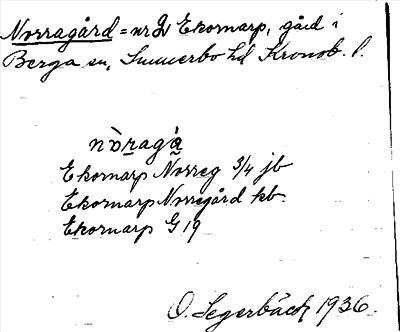 Norragård = nr 2 Ekornarp, gård i
Berga sn, Sunnerbo hd Kronob. l.
nòragά̱
Ekornarp Norreg 3/4 jb
Ekornarp Norregård kb.
Ekornarp G 19
O. Segerbäck 1936.